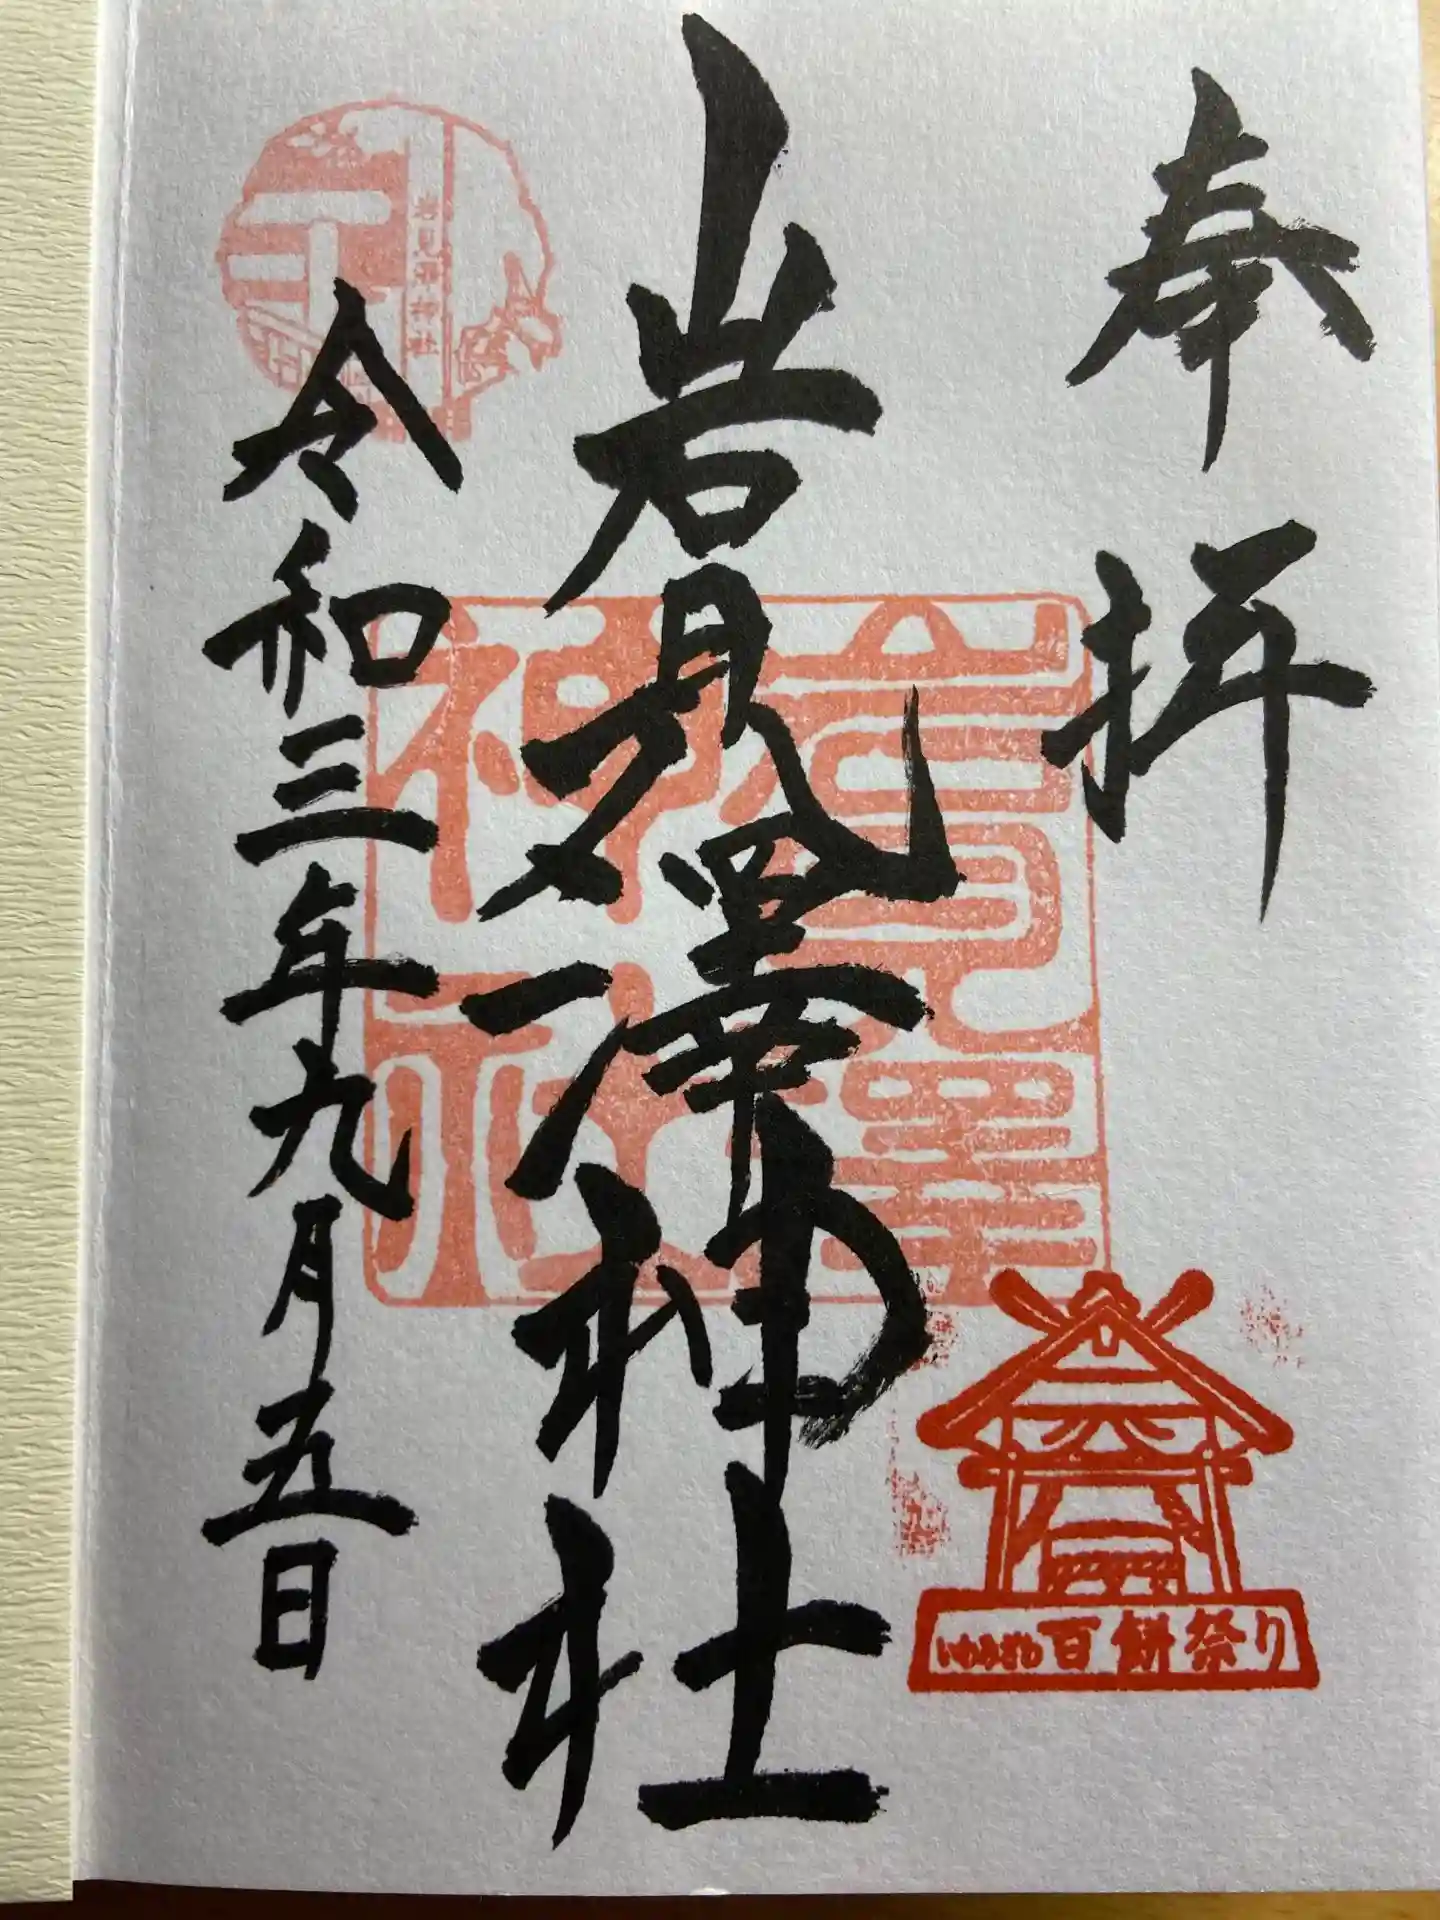 奉拝
岩見澤神社
令和三年九月五日
岩見澤神社
岩見澤神社
いわみざわ百餅祭り